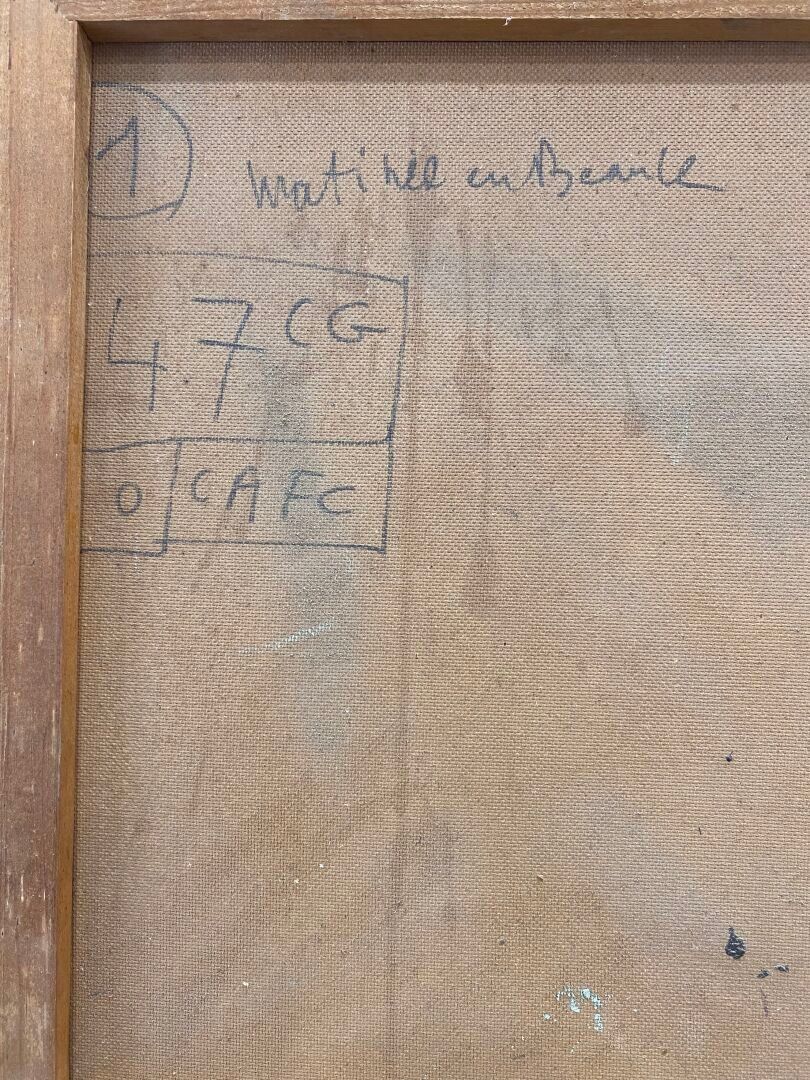 1
Matinée en Beauce
47 CG
0 CAFC